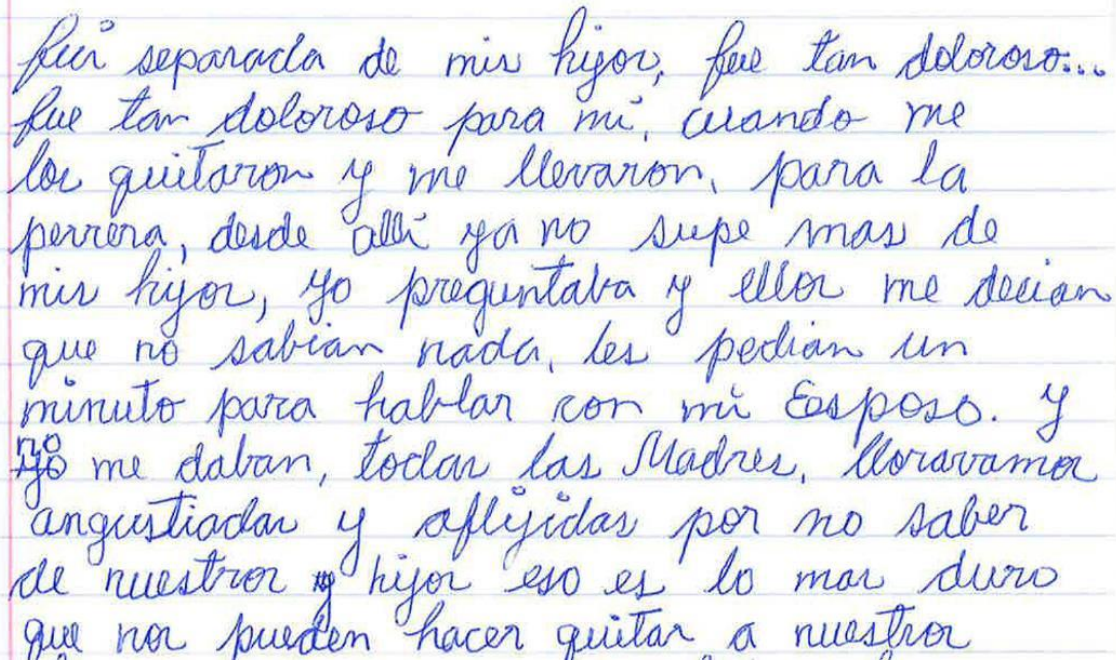 fui separada de mis hijos, fue tan doloroso...
fue tan doloroso para mi, cuando me
los quitaron y me llevaron, para la
perrera, desde alli ya no supe mas de
mis hijos, yo preguntaba y ellos me decian
que no sabian nada, les pedian un
minuto para hablar con mi Esposo. y
no me daban, todas las Madres, lloravamos
angustiadas y aflijidas por no saber
de nuestros hijos eso es lo mas duro
que nos pueden hacer quitar a nuestros